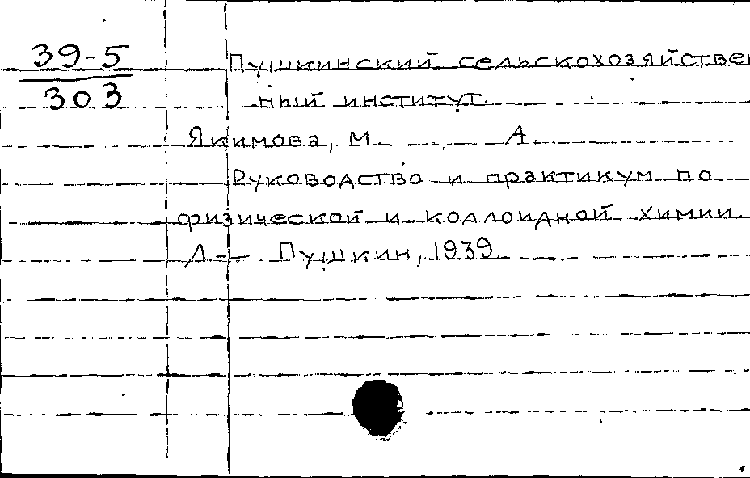 39-5
303
Пушкинский сельскохозяйствен
ный институт.
Якимова, М. А.
Руководство и практикум по
физической и коллоидной химии.
Л. — Пушкин, 1939.